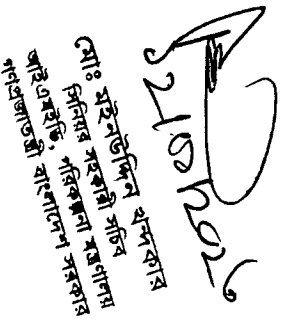 মোঃ মঈনউদ্দিন খন্দকার
সিনিয়র সহকারী সচিব
আইএমইডি, পরিকল্পনা মন্ত্রণালয়
গণপ্রজাতন্ত্রী বাংলাদেশ সরকার